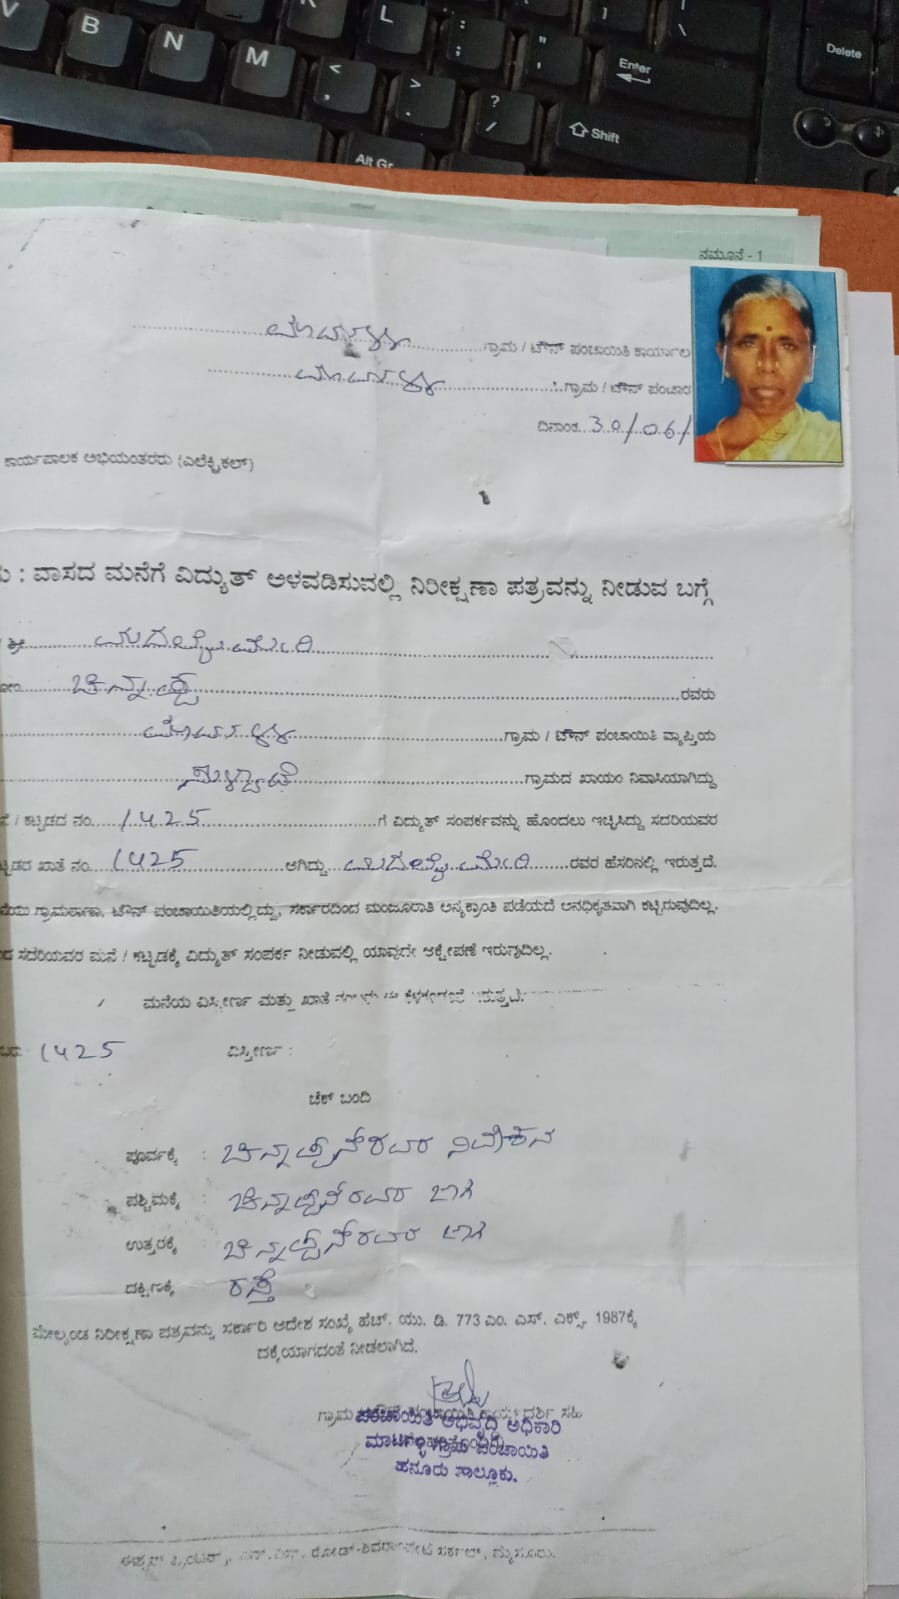 V B N M K L : ; " ' ] | \ Delete
< , > . ? / Enter Shift
Alt Gr
ನಮೂನೆ - 1
ಗ್ರಾಮ / ಟೌನ್ ಪಂಚಾಯಿತಿ ಕಾರ್ಯಾಲ
ಗ್ರಾಮ / ಟೌನ್ ಪಂಚಾಯ
ದಿನಾಂಕ 30/06/
ಕಾರ್ಯಪಾಲಕ ಅಭಿಯಂತರರು (ಎಲೆಕ್ಟ್ರಿಕಲ್)
: ವಾಸದ ಮನೆಗೆ ವಿದ್ಯುತ್ ಅಳವಡಿಸುವಲ್ಲಿ ನಿರೀಕ್ಷಣಾ ಪತ್ರವನ್ನು ನೀಡುವ ಬಗ್ಗೆ
ಶ್ರೀ ಮದಲೈ ಮೇರಿ
ಚಿನ್ನಪ್ಪ ರವರು
ಗ್ರಾಮ / ಟೌನ್ ಪಂಚಾಯಿತಿ ವ್ಯಾಪ್ತಿಯ
ಗ್ರಾಮದ ಖಾಯಂ ನಿವಾಸಿಯಾಗಿದ್ದು
/ ಕಟ್ಟಡದ ನಂ. 1425 ಗೆ ವಿದ್ಯುತ್ ಸಂಪರ್ಕವನ್ನು ಹೊಂದಲು ಇಚ್ಛಿಸಿದ್ದು ಸದರಿಯವರ
ಖಾತೆ ನಂ. 1425 ಆಗಿದ್ದು ಮದಲೈ ಮೇರಿ ರವರ ಹೆಸರಿನಲ್ಲಿ ಇರುತ್ತದೆ.
ಗ್ರಾಮಠಾಣಾ, ಟೌನ್ ಪಂಚಾಯಿತಿಯಲ್ಲಿದ್ದು, ಸರ್ಕಾರದಿಂದ ಮಂಜೂರಾತಿ ಅನ್ಯಕ್ರಾಂತಿ ಪಡೆಯದೆ ಅನಧಿಕೃತವಾಗಿ ಕಟ್ಟಿರುವುದಿಲ್ಲ.
ಸದರಿಯವರ ಮನೆ / ಕಟ್ಟಡಕ್ಕೆ ವಿದ್ಯುತ್ ಸಂಪರ್ಕ ನೀಡುವಲ್ಲಿ ಯಾವುದೇ ಆಕ್ಷೇಪಣೆ ಇರುವುದಿಲ್ಲ.
ಮನೆಯ ವಿಸ್ತೀರ್ಣ ಮತ್ತು ಖಾತೆ
1425 ವಿಸ್ತೀರ್ಣ :
ಚೆಕ್ ಬಂದಿ
ಪೂರ್ವಕ್ಕೆ : ಚಿನ್ನಪ್ಪನೇರವರ ನಿವೇಶನ
ಪಶ್ಚಿಮಕ್ಕೆ : ಚಿನ್ನಪ್ಪನೇರವರ ಜಾಗ
ಉತ್ತರಕ್ಕೆ : ಚಿನ್ನಪ್ಪನೇರವರ ಜಾಗ
ದಕ್ಷಿಣಕ್ಕೆ : ರಸ್ತೆ
ಮೇಲ್ಕಂಡ ನಿರೀಕ್ಷಣಾ ಪತ್ರವನ್ನು ಸರ್ಕಾರಿ ಆದೇಶ ಸಂಖ್ಯೆ ಹೆಚ್. ಯು. ಡಿ. 773 ಎಂ. ಎಸ್. ಎಕ್ಸ್. 1987ಕ್ಕೆ
ದಕ್ಕೆಯಾಗದಂತೆ ನೀಡಲಾಗಿದೆ.
ಪಂಚಾಯಿತಿ ಅಭಿವೃದ್ಧಿ ಅಧಿಕಾರಿ
ಮಾರ್ಟಳ್ಳಿ ಗ್ರಾಮ ಪಂಚಾಯಿತಿ
ಹನೂರು ತಾಲ್ಲೂಕು.